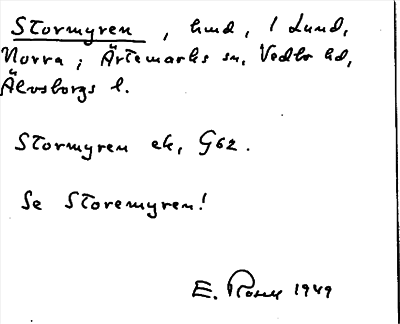 Stormyren, hmd, i Lund,
Norra; Ärtemarks sn, Vedbo hd,
Älvsborgs l.
Stormyren ek, G62.
Se Storemyren!
E. 1949